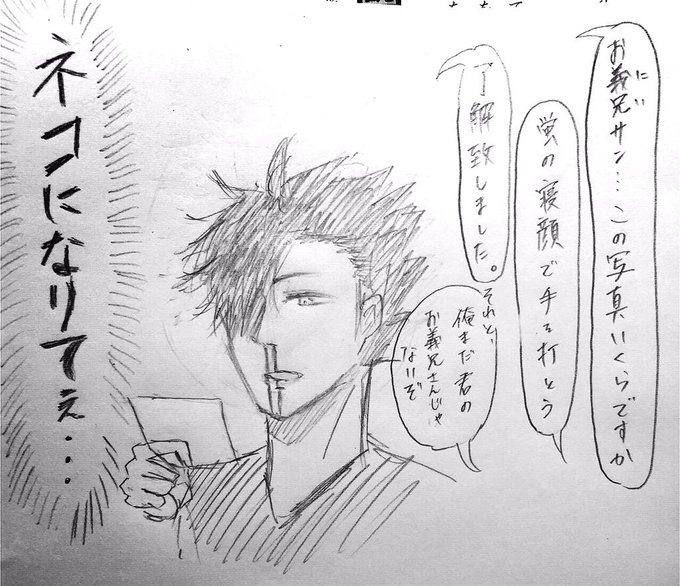 お義兄サン…この写真いくらですか
にい
蛍の寝顔で手を打とう
了解致しました。
それと、
俺まだ君の
お義兄さんじゃ
ないぞ
ネコになりてぇ…